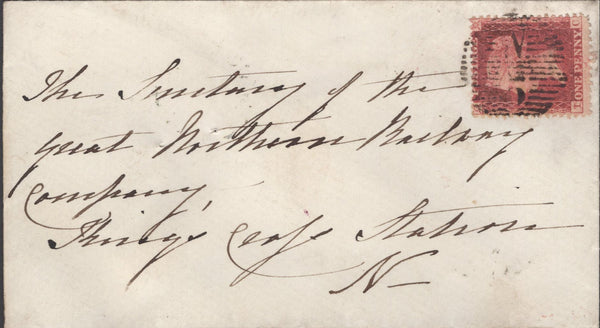 The Secretary of the
Great Northern Railway
Company,
Kings Cross Station
N
ONE PENNY